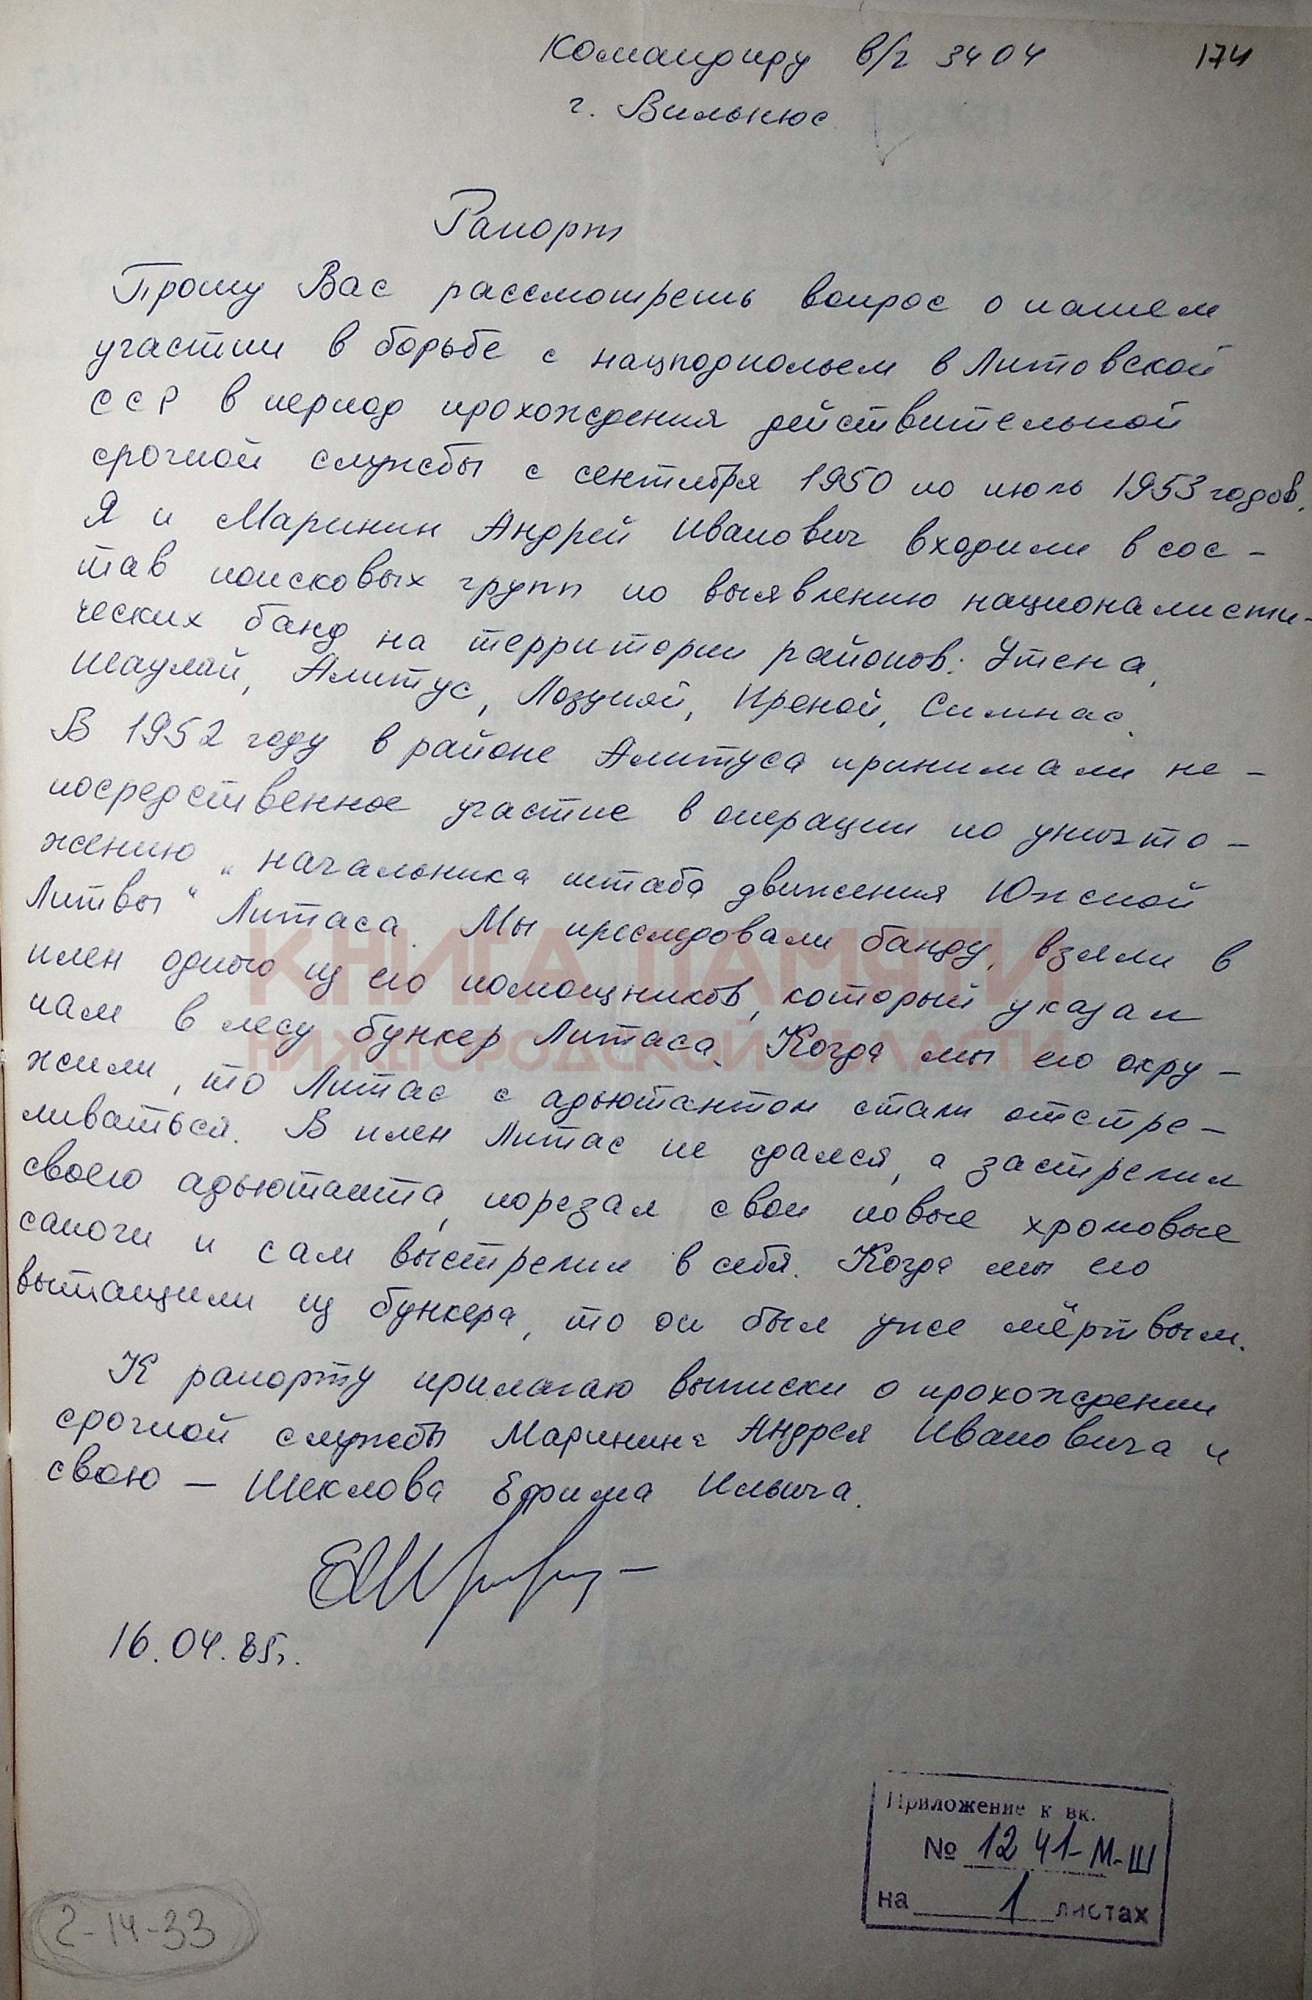 Командиру в/ч 3404
174
г. Вильнюс
Рапорт
Прошу Вас рассмотреть вопрос о нашем
участии в борьбе с нацподпольем в Литовской
ССР в период прохождения действительной
срочной службы с сентября 1950 по июль 1953 годов.
Я и Маринин Андрей Иванович входили в сос-
тав поисковых групп по выявлению националисти-
ческих банд на территории районов: Утена,
Шауляй, Алитус, Лоздияй, Преной, Симнас.
В 1952 году в районе Алитуса принимали не-
посредственное участие в операции по уничто-
жению „начальника штаба движения Южной
Литвы" Литаса. Мы преследовали банду, взяли в
плен одного из его помощников, который указал
нам в лесу бункер Литаса. Когда мы его окру-
жили, то Литас с адьютантом стали отстре-
ливаться. В плен Литас не сдался, а застрелил
своего адьютанта, порезал свои новые хромовые
сапоги и сам выстрелил в себя. Когда мы его
вытащили из бункера, то он был уже мёртвым.
К рапорту прилагаю выписки о прохождении
срочной службы Маринина Андрея Ивановича и
свою – Шеклова Ефима Ильича.
16.04.85г.
Приложение к вх.
№ 1241-М-Ш
на 1 листах
2-14-33
КНИГА ПАМЯТИ
НИЖЕГОРОДСКОЙ ОБЛАСТИ